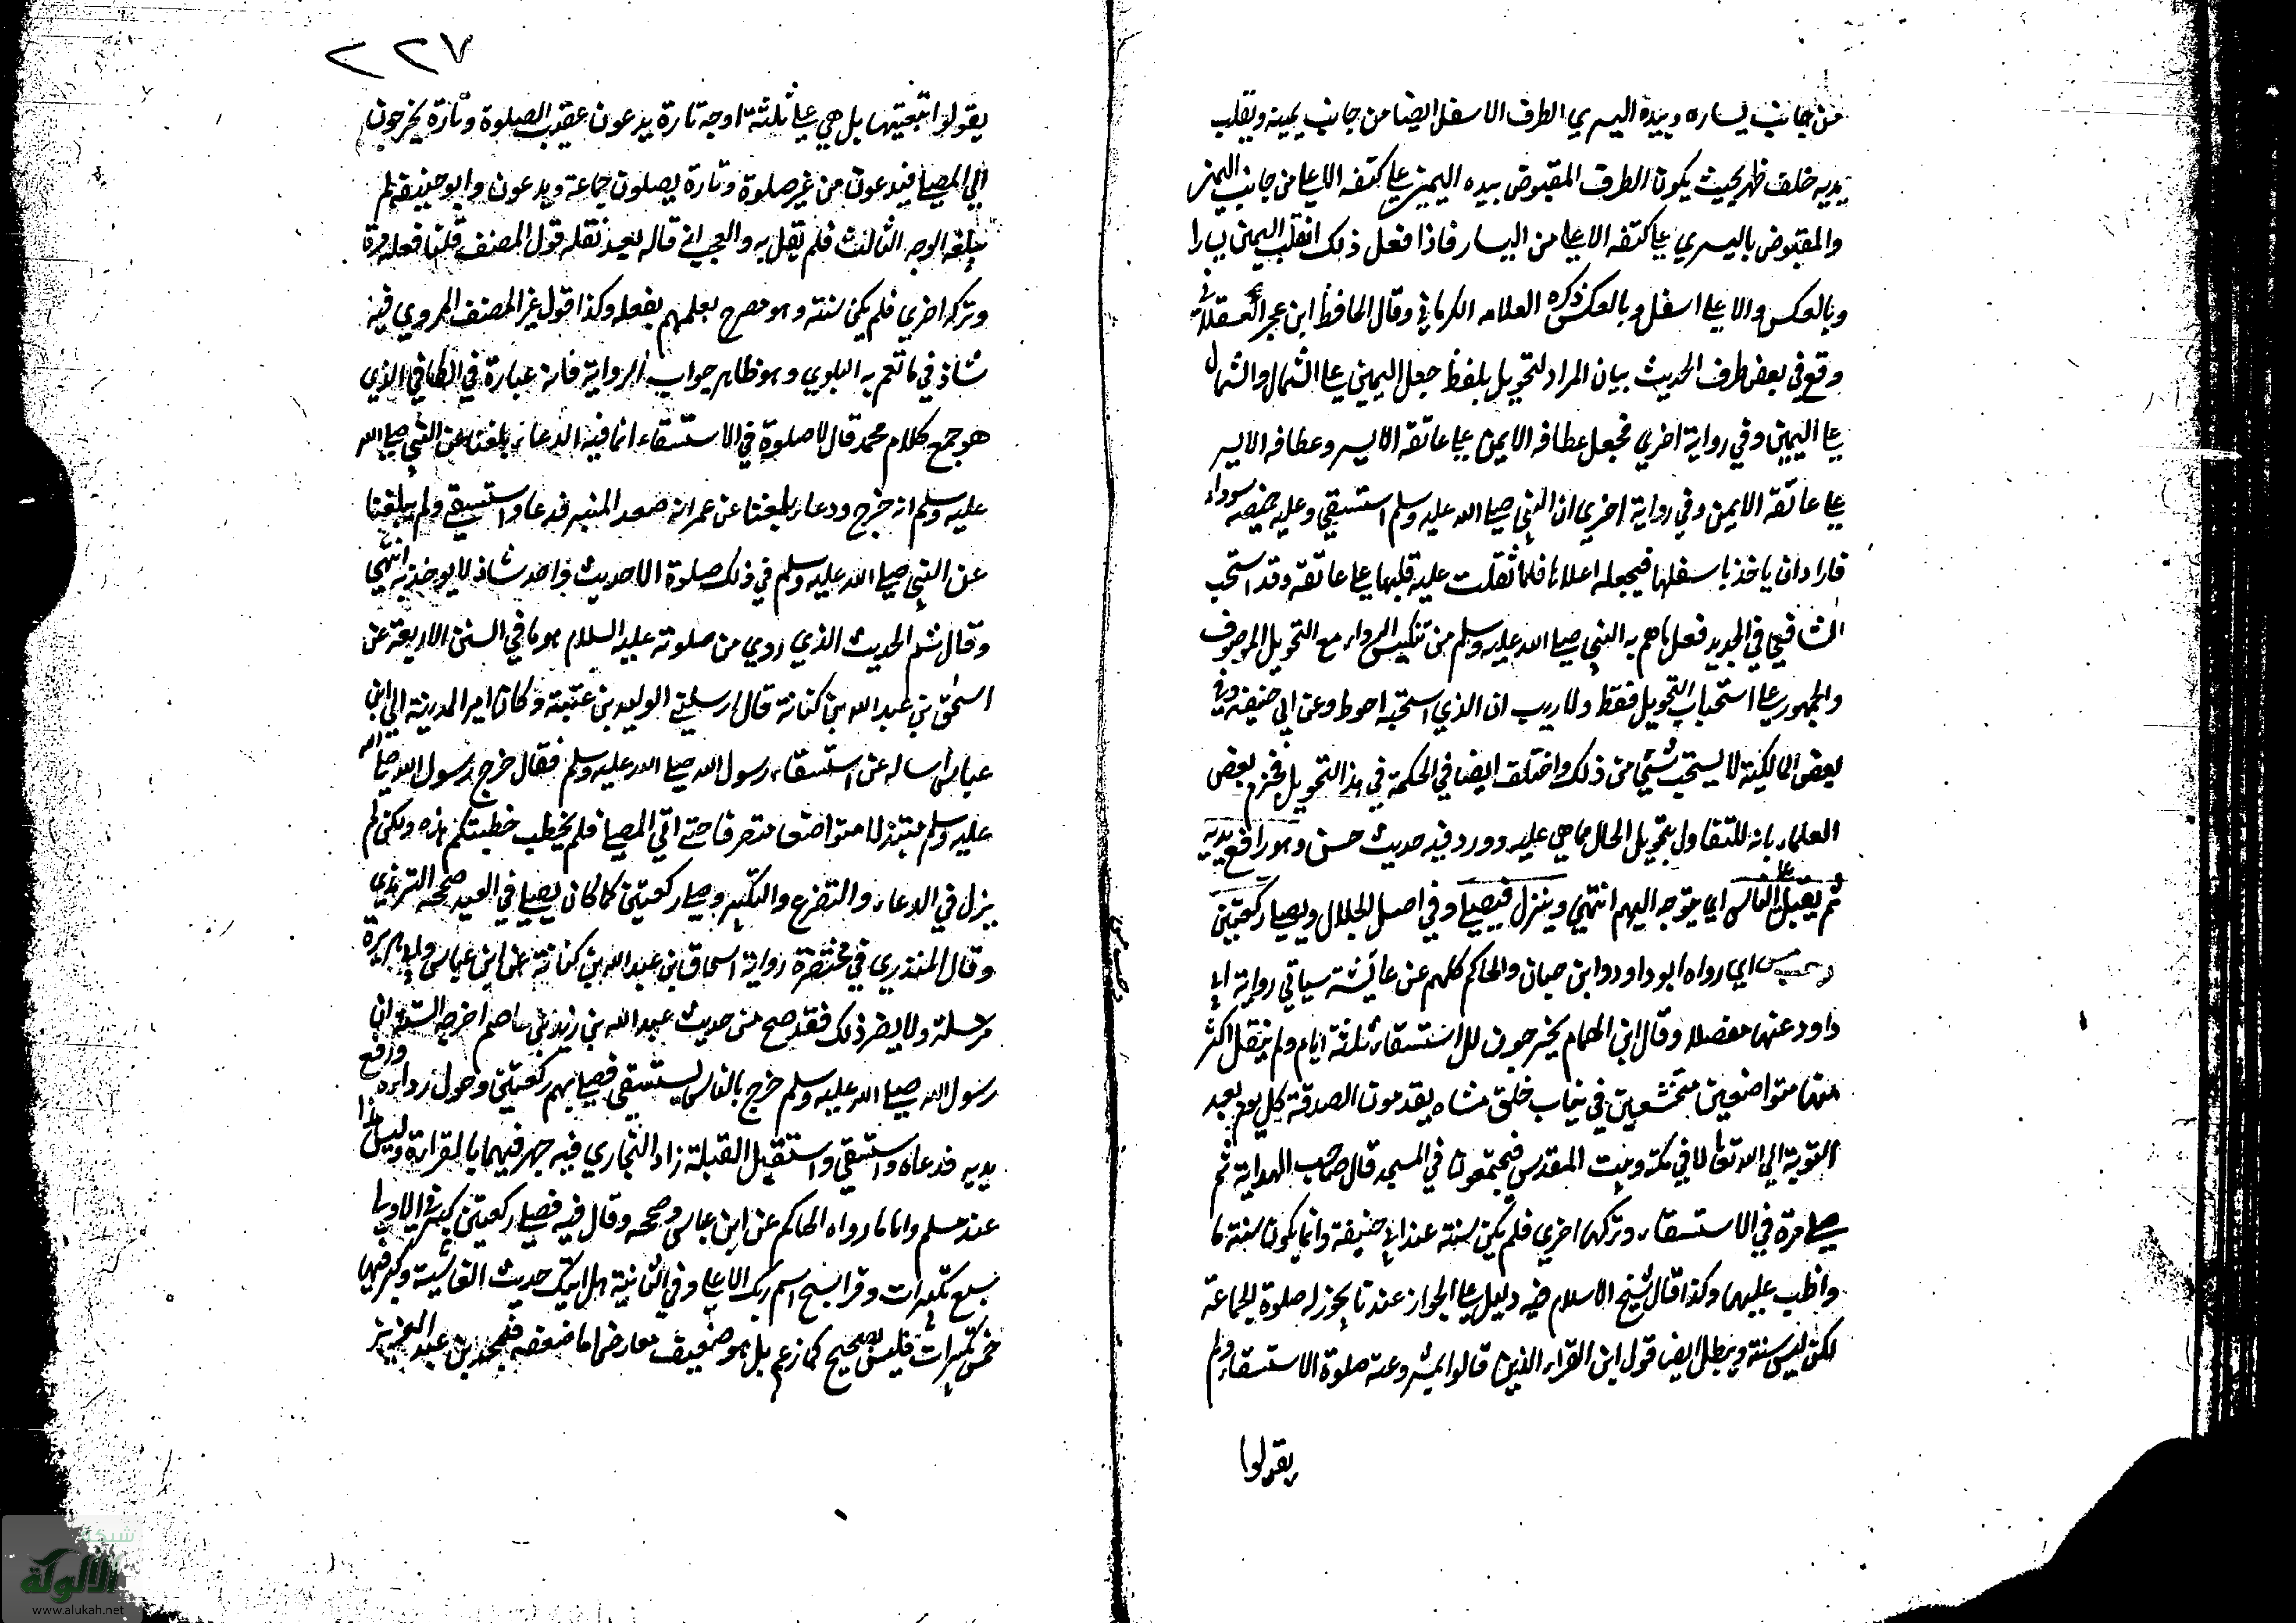 من جانب يساره وبيده اليسري الطرف الاسفل ايضا من جانب يمينه ويقلب
يديه خلف ظهره بحيث يكون الطرف المقبوض بيده اليمني علي كتفه الاعلي من جانب اليمين
والمقبوض باليسري علي كتفه الاعلي من اليسار فاذا فعل ذلك انقلب اليمين يسارا
وبالعكس والاعلي اسفل وبالعكس ذكره العلامه الكرماني وقال الحافظ ابن حجر العسقلاني
وقع في بعض طرف الحديث بيان المراد لتحويل بلفظ جعل اليمين علي الشمال والشمال
علي اليمين وفي رواية اخري فجعل عطافه الايمن علي عاتقه الايسر وعطافه الايسر
علي عاتقه الايمن وفي رواية اخري ان النبي صلي الله عليه وسلم استسقي وعليه خميصه سوداء
فاراد ان ياخذ باسفلها فيجعله اعلاها فلما ثقلت عليه قلبها علي عاتقه وقد استحب
الشافعي في الجديد فعل ما هم به النبي صلي الله عليه وسلم من تنكيس الرداء مع التحويل الموصوف
والجمهور علي استحباب التحويل فقط ولا ريب ان الذي استحبه احوط وعن ابي حنيفه وفي
بعض المالكية لا يستحب شئي من ذلك واختلف ايضا في الحكمة في هذا التحويل فجزم بعض
العلماء بانه للتفاول بتحويل الحال مما هي عليه وورد فيه حديث حسن وهو رافع يديه
ثم يقبل علي الناس اي يتوجه اليهم انتهي وينزل فيصلي وفي اصل الجلال ويصلي ركعتين
اي رواه ابو داود وابن حبان والحاكم كلهم عن عائشة سياتي رواية ابي
داود عنها مفصلا وقال ابن الهمام يخرجون للاستسقاء ثلثة ايام ولم ينقل اكثر
منها متواضعين متخشعين في ثياب خلق مشاه يقدمون الصدقة كل يوم بعد
التوبة الي الله تعالا في مكة وبيت المقدس فيجتمعون في المسجد قال صاحب الهداية ثم
صلي مرة في الاستسقاء وتركها اخري فلم يكن سنة عند ابي حنيفة وانما يكون سنة ما
واظب عليها وكذا قال شيخ الاسلام فيه دليل علي الجواز عندنا يجوز له صلوة الجماعة
لكن ليس سنة ويبطل ايضا قول ابن القراء الذين قالوا بمشروعة صلوة الاستسقاء ولم
يقولوا
٢٢٧
يقولوا بتعيينها بل هي علي ثلثة اوجه تارة يدعون عقيب الصلوة وتارة يخرجون
الي المصلي فيدعون من غير صلوة وتارة يصلون جماعة ويدعون وابو حنيفه لم
يبلغه الوجه الثالث فلم يقل به والعجب انه قاله بعد نقله قول المصنف قلنا فعله مرة
وتركه اخري فلم يكن سنة وهو مصرح بعلمهم بفعله وكذا قول غير المصنف المروي فيه
شاذ في ما تعم به البلوي وهو ظاهر جواب الرواية فان عبارة في الكافي الذي
هو جمع كلام محمد قال لا صلوة في الاستسقاء انما فيه الدعاء بلغنا عن النبي صلي الله
عليه وسلم انه خرج ودعا وبلغنا عن عمر انه صعد المنبر فدعا واستسقي ولم يبلغنا
عن النبي صلي الله عليه وسلم في ذلك صلوة الا حديث واحد شاذ لا يوخذ به انتهي
وقال ثم الحديث الذي روي من صلوته عليه السلام هو ما في السنن الاربعة عن
اسحق بن عبد الله بن كنانة قال ارسلني الوليد بن عتبة وكان امير المدينة الي ابن
عباس اساله عن استسقاء رسول الله صلي الله عليه وسلم فقال خرج رسول الله صلي الله
عليه وسلم مبتذلا متواضعا متضرعا حتي اتي المصلي فلم يخطب خطبتكم هذه ولكن لم
يزل في الدعاء والتضرع والتكبير وصلي ركعتين كما كان يصلي في العيد صححه الترمذي
وقال المنذري في مختصره رواية اسحاق بن عبد الله بن كنانة عن ابن عباس وابي هريرة
مرسلة ولا يضر ذلك فقد صح من حديث عبد الله بن زيد بن عاصم اخرجه الستة ان
رسول الله صلي الله عليه وسلم خرج بالناس يستسقي فصلي بهم ركعتين وحول رداءه ورفع
يديه فدعاه واستسقي واستقبل القبلة زاد البخاري فيه جهر فيهما بالقراءة وليس هذا
عند مسلم واما ما رواه الحاكم عن ابن عباس وصححه وقال فيه فصلي ركعتين كبر في الاولي
سبع تكبيرات وقرا سبح اسم ربك الاعلي وفي الثانية هل اتيك حديث الغاشية وكبر فيها
خمس تكبيرات فليس بصحيح كما زعم بل هو ضعيف معارض اما ضعفه فبمحمد بن عبد العزيز
شبكة
الألوكة
www.alukah.net